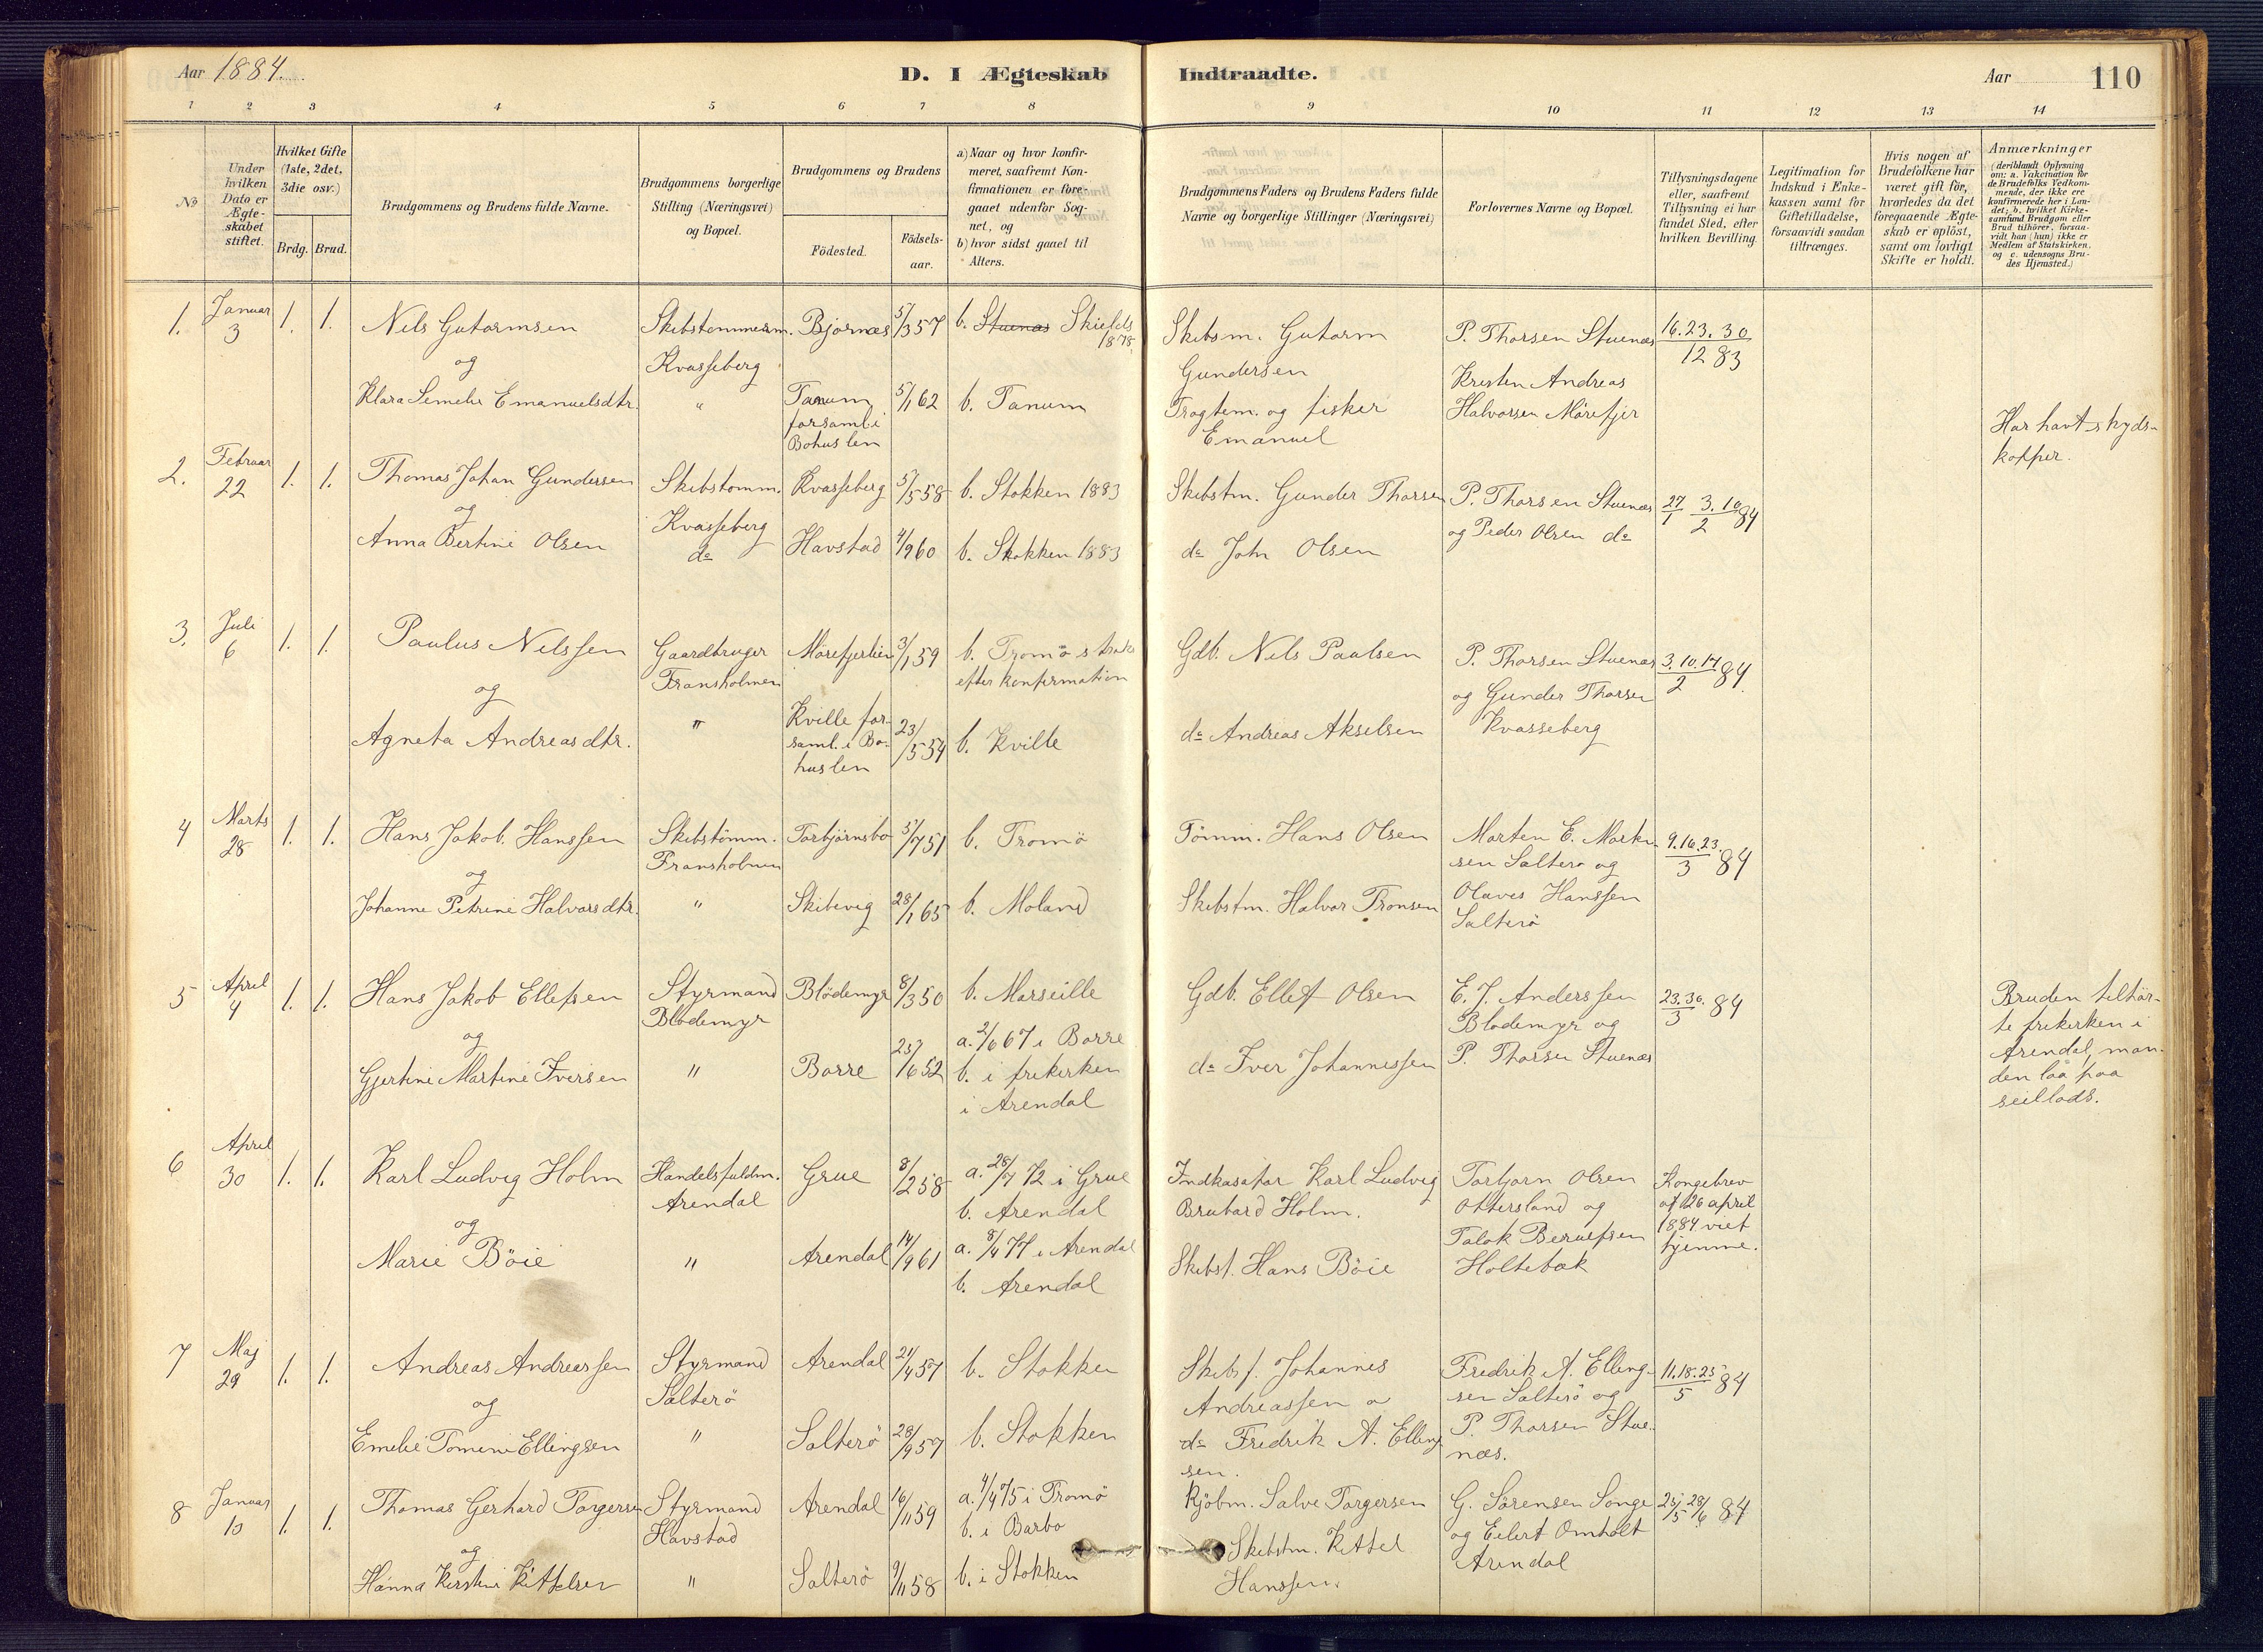 Aar 1884.
D. I Ægteskab Indtraadte.
Aar 110
1 2 3 4 5 6 7 8 9 10 11 12 13 14
No
Under hvilken Dato er Ægteskabet stiftet.
Hvilket Gifte (1ste, 2det, 3die osv.)
Brdg. Brud.
Brudgommens og Brudens fulde Navne.
Brudgommens borgerlige Stilling (Næringsvei) og Bopæl.
Brudgommens og Brudens
Födested.
Födselsaar.
a) Naar og hvor konfirmeret, saafremt Konfirmationen er foregaaet udenfor Sognet, og
b) hvor sidst gaaet til Alters.
Brudgommens Faders og Brudens Faders fulde Navne og borgerlige Stillinger (Næringsvei)
Forlovernes Navne og Bopæl.
Tillysningsdagene eller, saafremt Tillysning ei har fundet Sted, efter hvilken Bevilling
Legitimation for Indskud i Enkekassen samt for Giftetilladelse, forsaavidt saadan tiltrænges.
Hvis nogen af Brudefolkene har været gift før, hvorledes da det foregaaende Ægteskab er oplöst, samt om lovligt Skifte er holdt.
Anmærkninger
(deriblandt Oplysning om: a. Vakcination for de Brudefolks Vedkommende, der ikke ere konfirmerede her i Landet; b. hvilket Kirkesamfund Brudgom eller Brud tilhörer, forsaavidt han (hun) ikke er Medlem af Statskirken. og c. udensogns Brudes Hjemsted.)
1. Januar 3 1. 1. Nels Gutormsen
og
Klara Semelie Emanuelsdtr.
Skibstømmerm. Kvasseberg
"
Bjornæs 5/3 57 b. Stuenæs Skiefds 1878
Tanum forsaml. i Bohuslen 5/11 62 b. Tanum
Skibsm. Gutorm Gundersen
Emanuel
P. Thorsen Stuenæs
Kristen Andreas Halvorsen Mörefjer
16. 23. 30 / 12 83
Har havt skydskopper.
2. Februar 22 1. 1. Thomas Johan Gundersen
og
Anna Bertine Olsen
Skibstomm. Kvasseberg
do
Kvasseberg 5/5 58 b. Stokken 1883
Havstad 4/9 60 b. Stokken 1883
Skibstm. Gunder Thorsen
do John Olsen
P. Thorsen Stuenæs
og Peder Olsen do
27/1 3. 10/2 84
3. Juli 6 1. 1. Paulus Nilssen
og
Agneta Andreasdtr.
Gaardbruger Fransholmen
"
Mörefjerheien 3/1 59 b. Tromö straks efter konfirmation
Kville forsaml. i Bohuslen 23/5 54 b. Kville
Gdb. Nels Paulsen
do Andreas Akselsen
P. Thorsen Stuenæs
og Gunder Thorsen
Kvasseberg
3. 10. 17 / 2 84.
4 Marts 28 1. 1. Hans Jakob Hanssen
og
Johanne Petrine Halvorsdtr.
Skibstömm. Fransholmen
"
Torbjørnsbo 5/7 51 b. Tromö
Skibevig 28/1 65 b. Moland
Tömm. Hans Olsen
Skibstm. Halvor Tronsen
Morten E. Markussen Salterö og
Olaves Hanssen
Salterö
9. 16. 23. / 3 84
5 April 4 1. 1. Hans Jakob Ellefsen
og
Gjertine Martine Iversen
Styrmand Blodemyr
"
Blödemyr 8/3 50 b. Marseille
Borre 25/6 52 a. 2/6 67 i Borre
b. i frikirken i Arendal
Gdb. Ellef Olsen
do Iver Johannessen
E. J. Anderssen
Blodemyr og
P. Thorsen Stuenæs
23. 30. / 3 84
Bruden tilhörte frikirken i Arendal, manden laa paa seillads.
6 April 30 1. 1. Karl Ludvig Holm
og
Marie Böie
Handelsfuldm. Arendal
"
Grue 8/2 58 a. 28/7 72 i Grue
b. Arendal
Arendal 14/9 61 a. 8/4 77 i Arendal
b. Arendal
Indkasator Karl Ludvig Holm.
Skibsf. Hans Böie
Torbjorn Olsen
Ottersland og
Holtebæk
Kongebrev af 26 april 1884 viet hjemme.
7 Maj 29 1. 1. Andreas Andreassen
og
Emelie Tomine Ellingsen
Styrmand Salterö
"
Arendal 21/4 57 b. Stokken
Salterö 28/9 57 b. Stokken
Skibsf. Johannes Andreassen
do Fredrik A. Ellingsen.
Fredrik A. Ellingsen Salterö og
P. Thorsen Stuenæs.
11. 18. 25 / 5 84
8 Januar 10 1. 1. Thomas Gerhard Torgersen
og
Hanna Kirstine Kittelsen
Styrmand Havstad
"
Arendal 16/11 59 a. 4/4 75 i Tromö
b. i Barbo
Salterö 9/11 58 b. i Stokken
Kjöbm. Salve Torgersen
Skibstm. Kittel Hanssen.
G. Sörensen Songe
og Eilert Omholt
Arendal
25/5 28/6 84